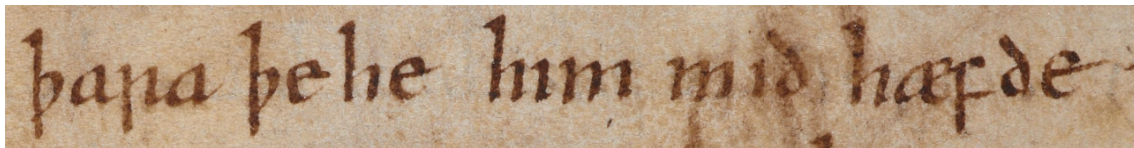 þara þe he him mid hæfde